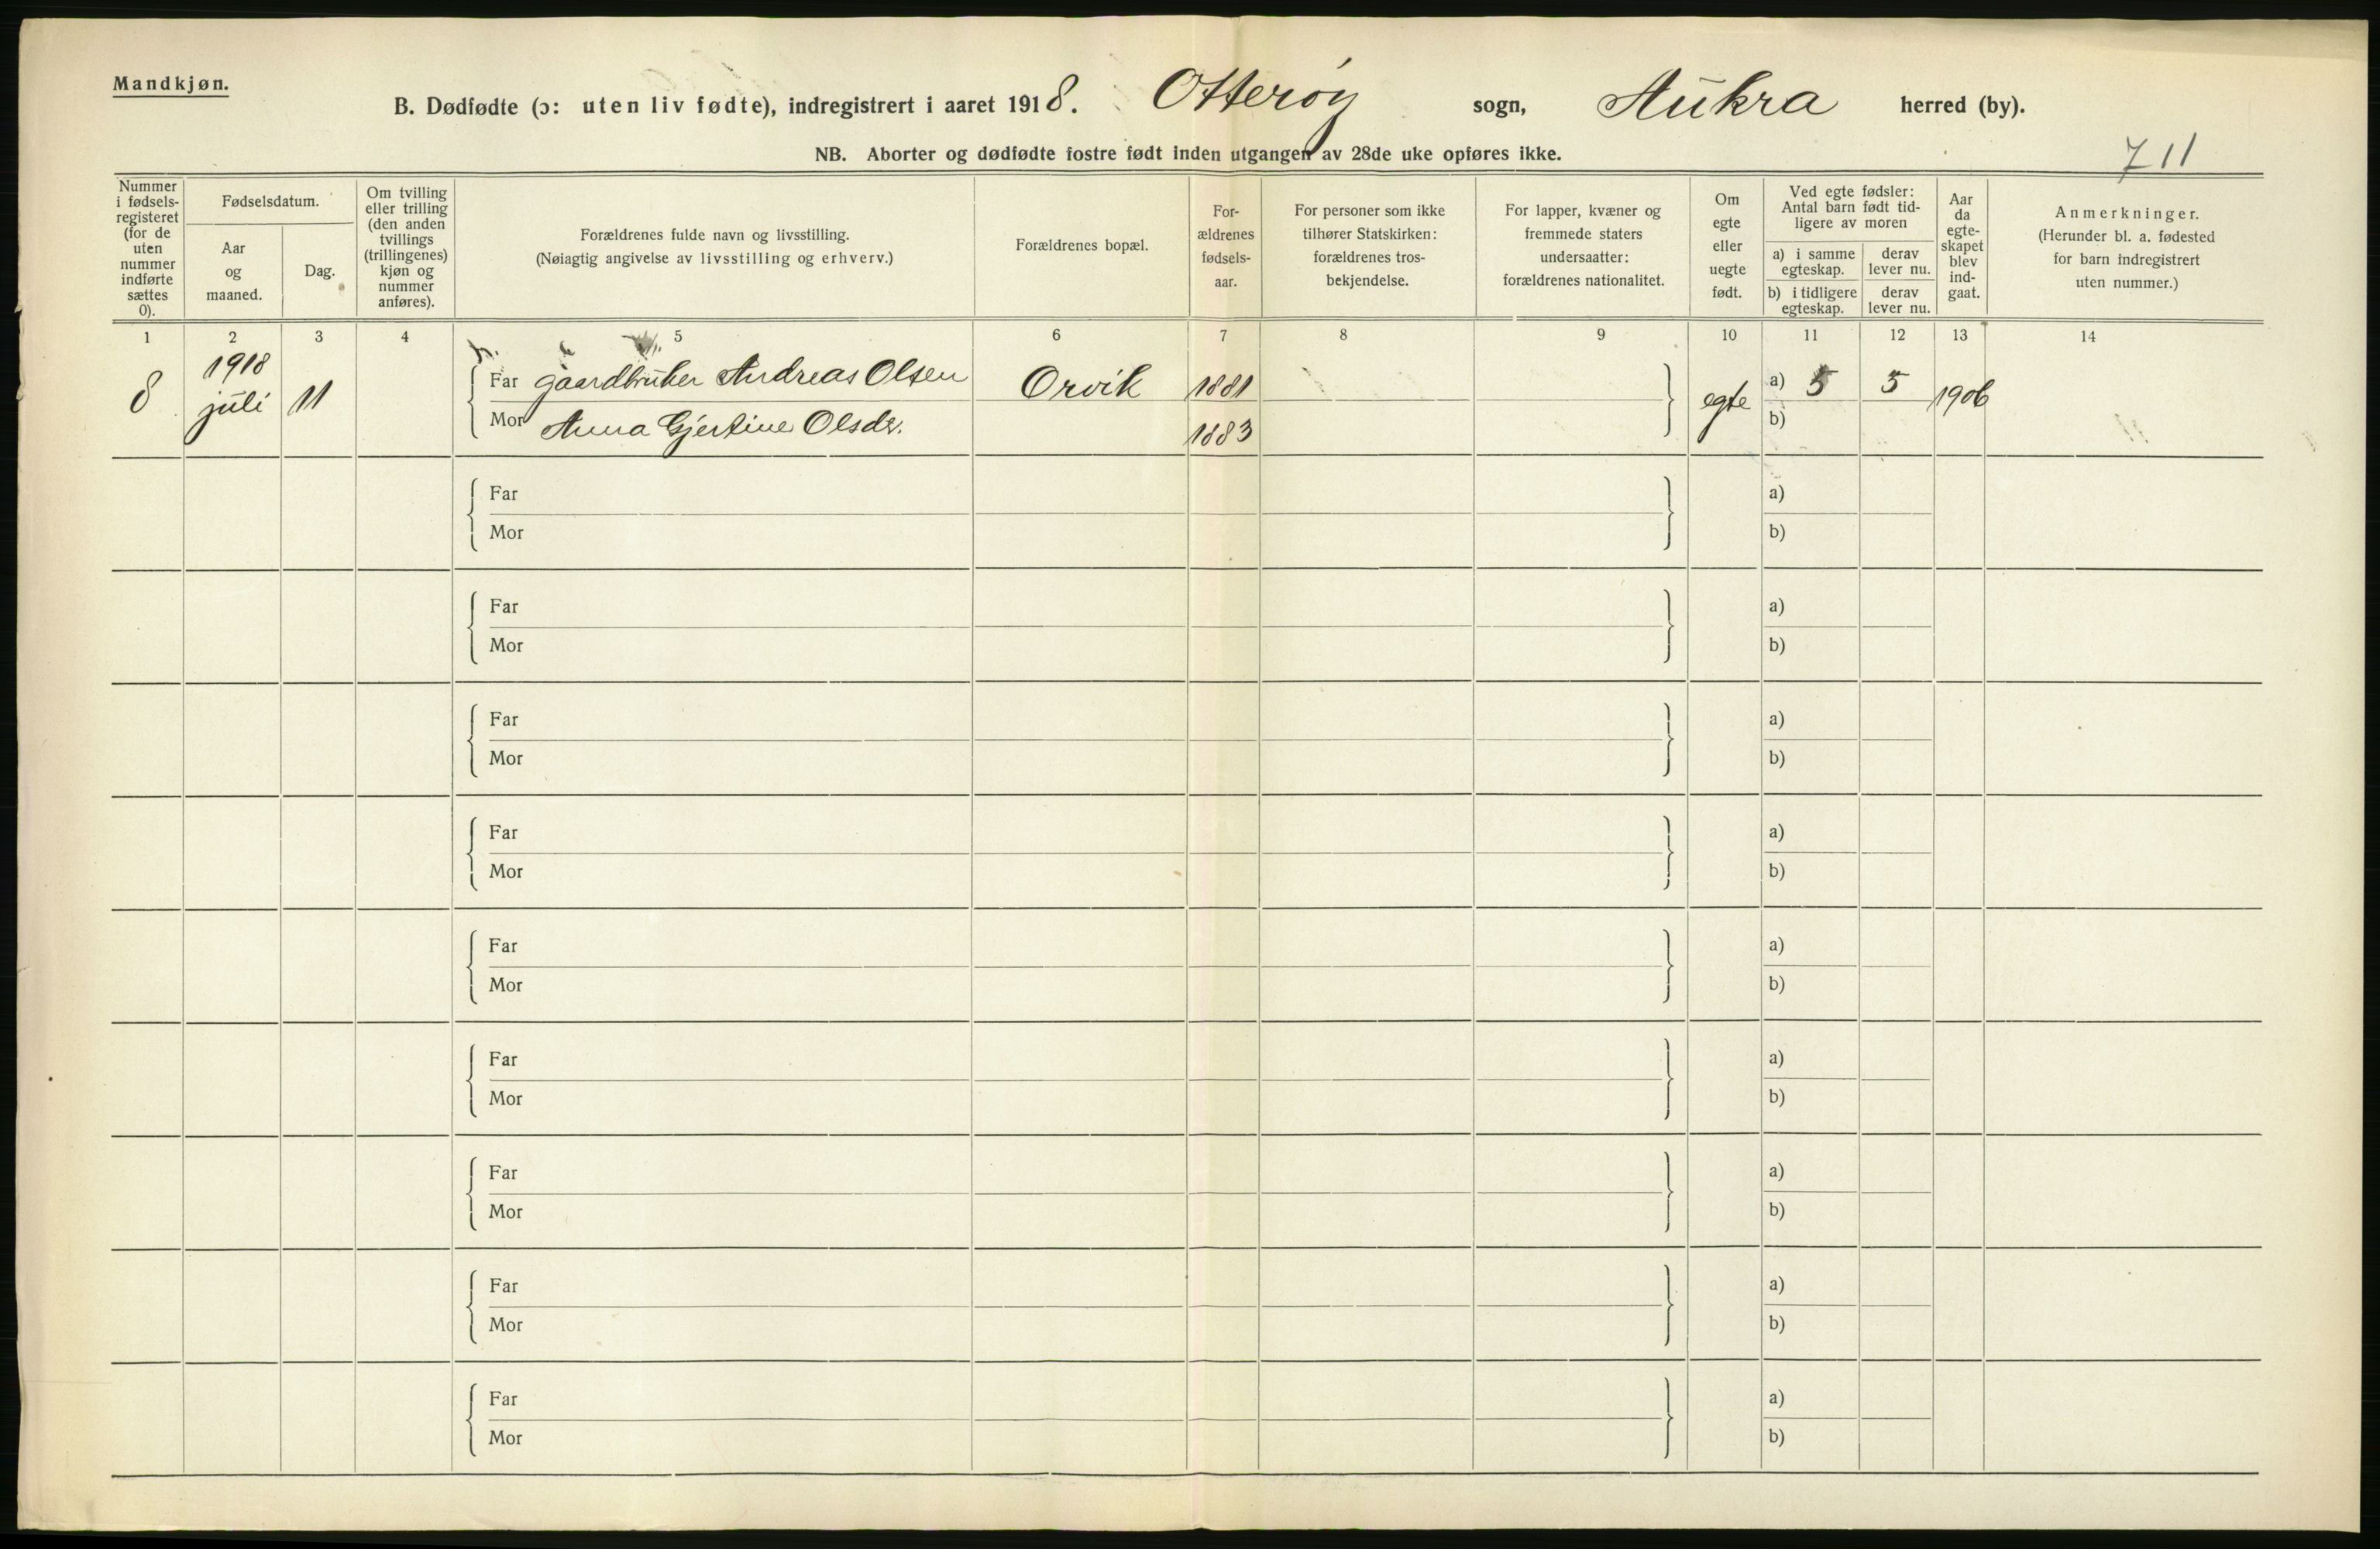 Mandkjøn.
B. Dødfødte (ɔ: uten liv fødte), indregistrert i aaret 1918. Otterøy sogn, Aukra herred (by).
NB. Aborter og dødfødte fostre født inden utgangen av 28de uke opføres ikke.
711
Nummer
i fødsels-
registeret
(for de
uten
nummer
indførte
sættes
0).
Fødselsdatum.
Aar
og
maaned.
Dag.
Om tvilling
eller trilling
(den anden
tvillings
(trillingenes)
kjøn og
nummer
anføres).
Forældrenes fulde navn og livsstilling.
(Nøiagtig angivelse av livsstilling og erhverv.)
Forældrenes bopæl.
For-
ældrenes
fødsels-
aar.
For personer som ikke
tilhører Statskirken:
forældrenes tros-
bekjendelse.
For lapper, kvæner og
fremmede staters
undersaatter:
forældrenes nationalitet.
Om
egte
eller
uegte
født.
Ved egte fødsler:
Antal barn født tid-
ligere av moren
a) i samme
egteskap.
derav
lever nu.
b) i tidligere
egteskap.
derav
lever nu.
Aar
da
egte-
skapet
blev
ind-
gaat.
Anmerkninger.
(Herunder bl. a. fødested
for barn indregistrert
uten nummer.)
1 2 3 4 5 6 7 8 9 10 11 12 13 14
8 1918 juli 11 Far gaardbruker Andreas Olsen Orvik 1881 egte a) 5 5 1906
Mor Anna Gjertine Olsdr. 1883 b)
Far a)
Mor b)
Far a)
Mor b)
Far a)
Mor b)
Far a)
Mor b)
Far a)
Mor b)
Far a)
Mor b)
Far a)
Mor b)
Far a)
Mor b)
Far a)
Mor b)